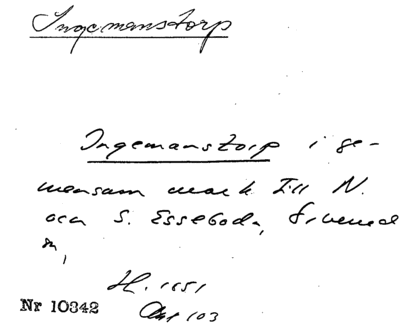 Ingemanstorp
Ingemanstorp i ge-
mensam mark till N.
och S. Esseboda,
sn,
H. 1651
Akt 103
Nr 10342